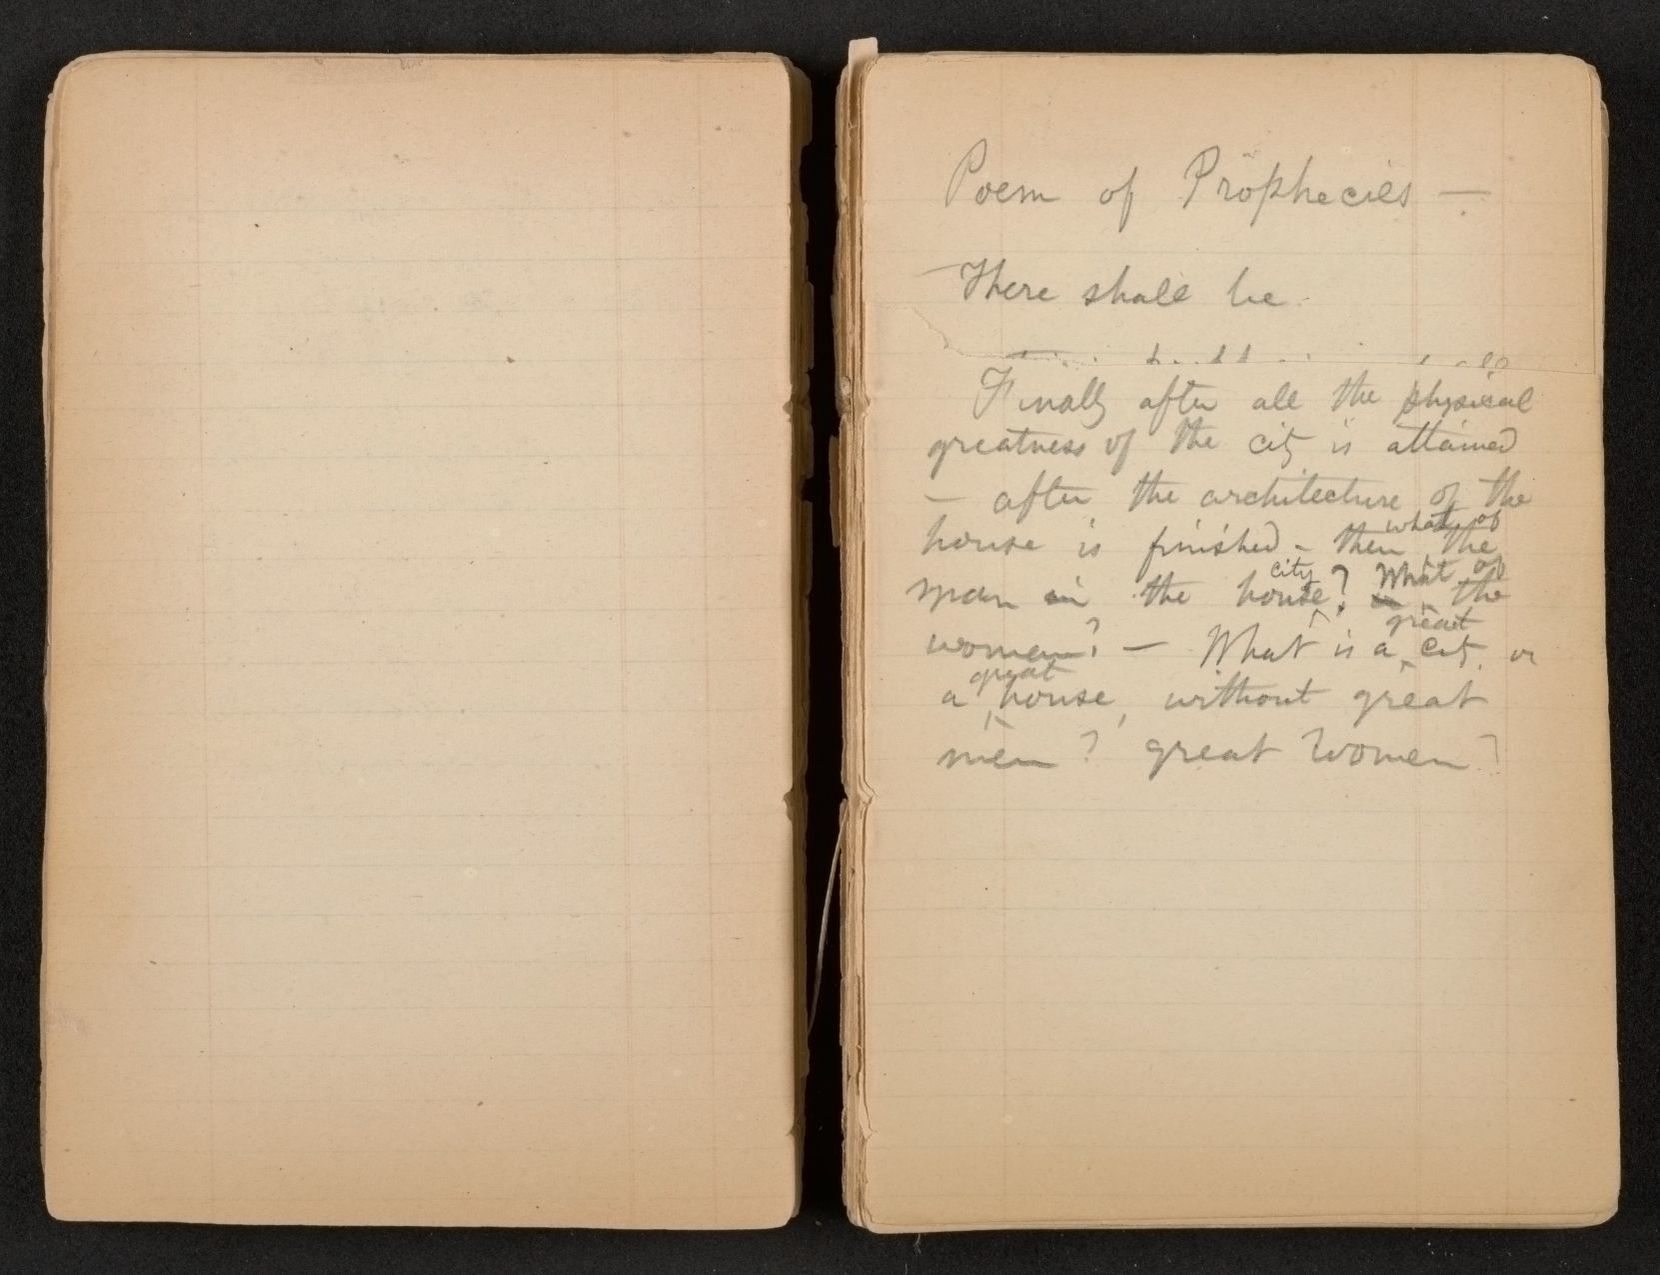 Poem of Prophecies —
There shall be
Finally after all the physical
greatness of the city is attained
— after the architecture of the
what of
house is finished – then the
city What of
man in the house? the
great
women? — What is a city, or
great
a house, without great
men? great women?